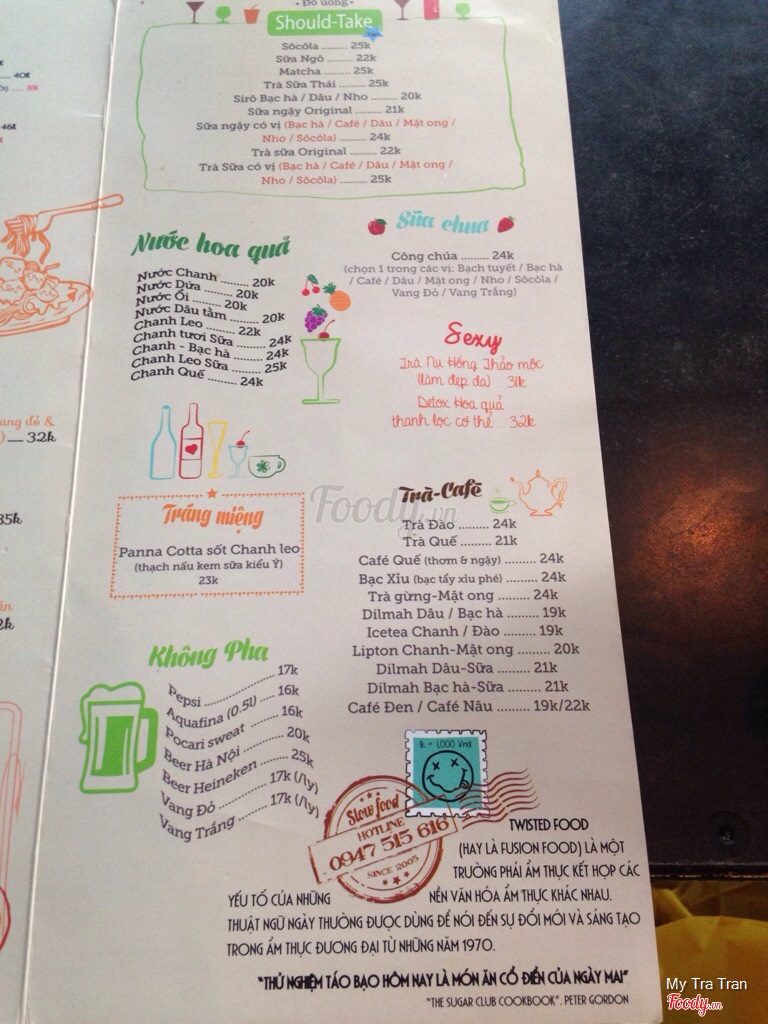 • Đồ uống •
Should-Take
Sôcôla ......... 25k
Sữa Ngô ......... 22k
Matcha ......... 25k
Trà Sữa Thái ......... 25k
Sirô Bạc hà / Dâu / Nho ......... 20k
Sữa ngậy Original ......... 21k
Sữa ngậy có vị (Bạc hà / Café / Dâu / Mật ong /
Nho / Sôcôla) ......... 24k
Trà sữa Original ......... 22k
Trà Sữa có vị (Bạc hà / Café / Dâu / Mật ong /
Nho / Sôcôla) ......... 25k
Nước hoa quả
Nước Chanh ......... 20k
Nước Dừa ......... 20k
Nước Ổi ......... 20k
Nước Dâu tằm ......... 20k
Chanh Leo ......... 22k
Chanh tươi Sữa ......... 24k
Chanh - Bạc hà ......... 24k
Chanh Leo Sữa ......... 25k
Chanh Quế ......... 24k
Sữa chua
Công chúa ......... 24k
(chọn 1 trong các vị: Bạch tuyết / Bạc hà
/ Café / Dâu / Mật ong / Nho / Sôcôla /
Vang Đỏ / Vang Trắng)
Sexy
Trà Nụ Hồng Thảo mộc
(làm đẹp da) 31k
Detox Hoa quả
thanh lọc cơ thể 32k
Tráng miệng
Panna Cotta sốt Chanh leo
(thạch nấu kem sữa kiểu Ý)
23k
Trà-Café
Trà Đào ......... 24k
Trà Quế ......... 21k
Café Quế (thơm & ngậy) ......... 24k
Bạc Xỉu (bạc tẩy xỉu phé) ......... 24k
Trà gừng-Mật ong ......... 24k
Dilmah Dâu / Bạc hà ......... 19k
Icetea Chanh / Đào ......... 19k
Lipton Chanh-Mật ong ......... 20k
Dilmah Dâu-Sữa ......... 21k
Dilmah Bạc hà-Sữa ......... 21k
Café Đen / Café Nâu ......... 19k/22k
Không Pha
Pepsi ......... 17k
Aquafina (0.5l) ......... 16k
Pocari sweat ......... 16k
Beer Hà Nội ......... 20k
Beer Heineken ......... 25k
Vang Đỏ ......... 17k (/ly)
Vang Trắng ......... 17k (/ly)
1k = 1,000 Vnd
Slow food
HOTLINE
0947 515 616
SINCE 2005
TWISTED FOOD
(HAY LÀ FUSION FOOD) LÀ MỘT
TRƯỜNG PHÁI ẨM THỰC KẾT HỢP CÁC
YẾU TỐ CỦA NHỮNG NỀN VĂN HÓA ẨM THỰC KHÁC NHAU.
THUẬT NGỮ NGÀY THƯỜNG ĐƯỢC DÙNG ĐỂ NÓI ĐẾN SỰ ĐỔI MỚI VÀ SÁNG TẠO
TRONG ẨM THỰC ĐƯƠNG ĐẠI TỪ NHỮNG NĂM 1970.
"THỬ NGHIỆM TÁO BẠO HÔM NAY LÀ MÓN ĂN CỔ ĐIỂN CỦA NGÀY MAI"
"THE SUGAR CLUB COOKBOOK". PETER GORDON
40k
46k
ang đỏ &
) ..... 32k
35k
2k
Foody.vn
My Tra Tran
Foody.vn